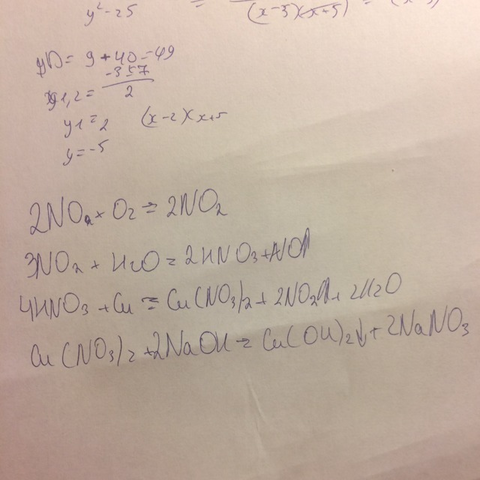 y²-25 = (x-5)(x+5) =
D= 9+40=49
-3±7
y1,2= 2
y1=2 (x-2)(x+5
y=-5
2NO2+O2=2NO2
3NO2+H2O=2HNO3+NO↑
4HNO3+Cu=Cu(NO3)2+2NO2↑+2H2O
Cu(NO3)2+2NaOH=Cu(OH)2↓+2NaNO3